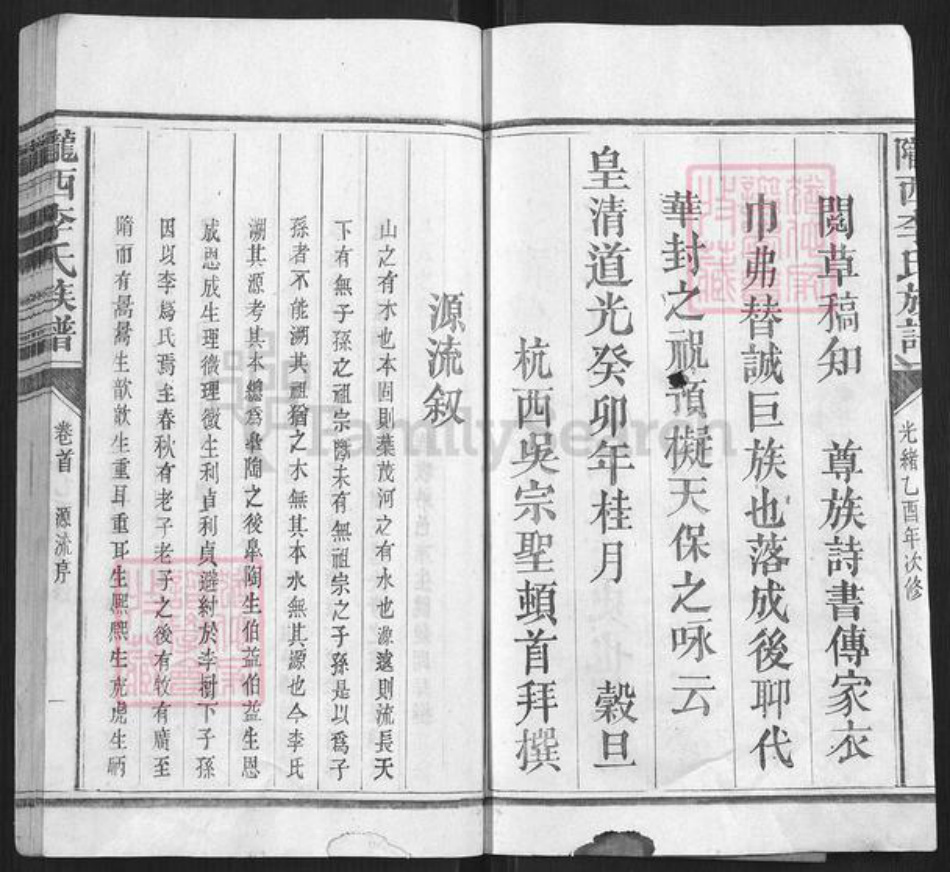 隴西李氏族譜
光緒乙酉年次修
閱草稿知 尊族詩書傳家衣
巾弗替誠巨族也落成後聊代
華封之祝預擬天保之咏云
皇清道光癸卯年桂月 穀旦
杭西吳宗聖頓首拜撰
源流叙
山之有木也本固則葉茂河之有水也源遠則流長天
下有無子孫之祖宗斷未有無祖宗之子孫是以為子
孫者不能溯其祖猶之木無其本水無其源也今李氏
溯其源考其本繼為臯陶之後臯陶生伯益伯益生恩
成恩成生理徵理徵生利貞利貞避紂於李樹下子孫
因以李為氏焉至春秋有老子老子之後有牧有廣至
隋而有暠暠生歆歆生重耳重耳生熙熙生虎虎生昞
隴西李氏族譜
卷首 源流序 一
FamilySearch